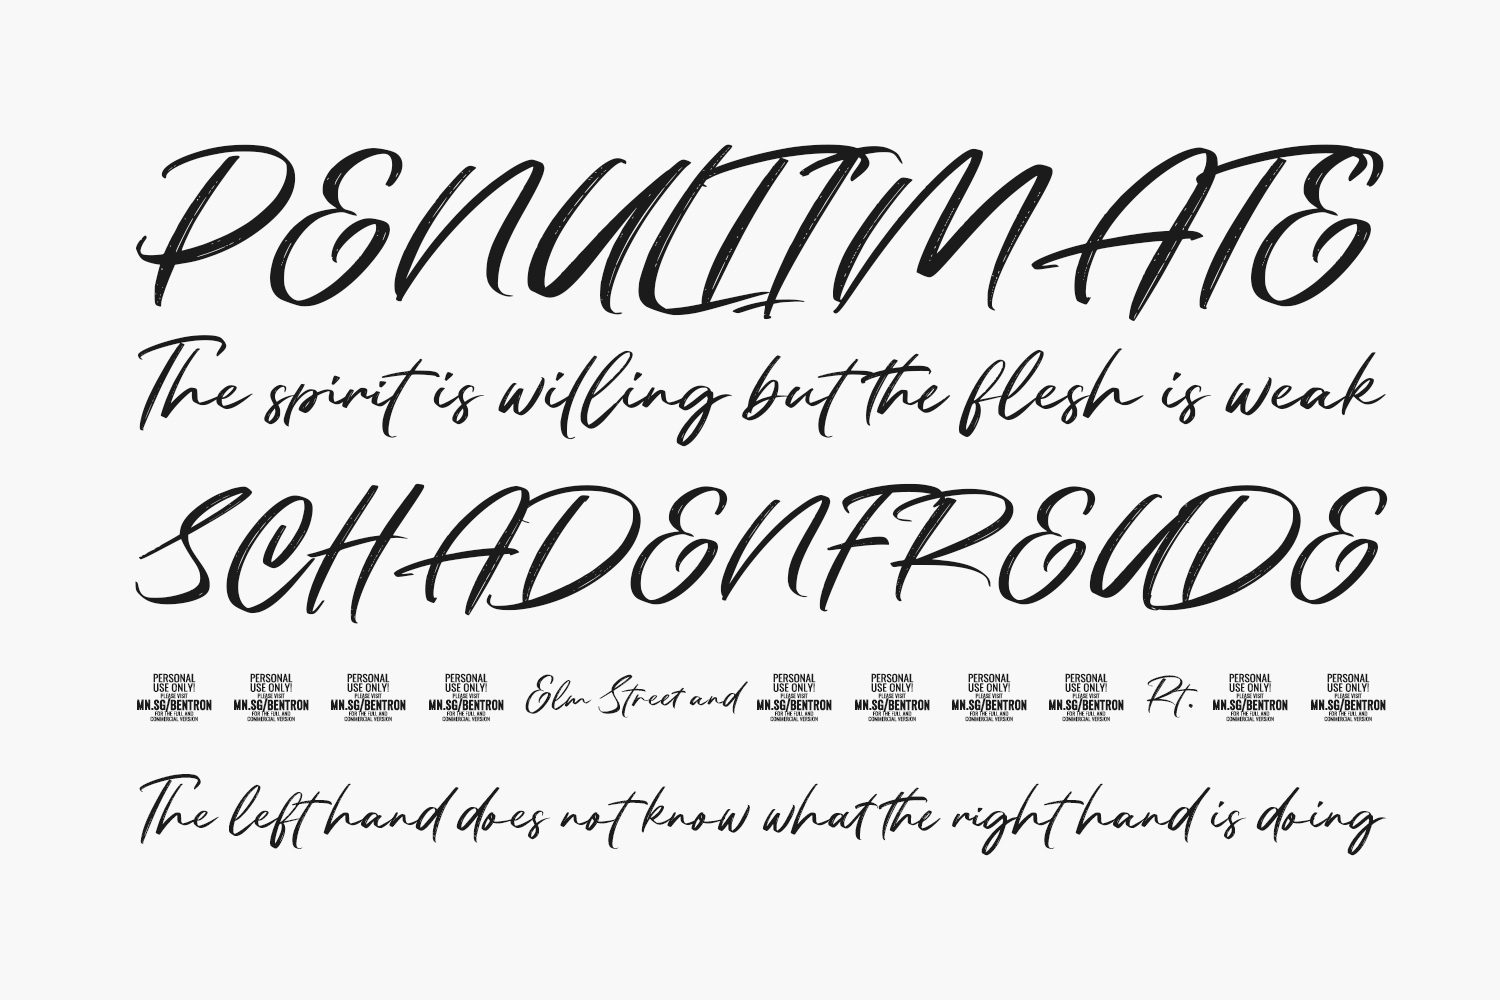 PENULTIMATE
The spirit is willing but the flesh is weak
SCHADENFREUDE
PERSONAL USE ONLY! PLEASE VISIT MN.SG/BENTRON FOR THE FULL AND COMMERCIAL VERSION PERSONAL USE ONLY! PLEASE VISIT MN.SG/BENTRON FOR THE FULL AND COMMERCIAL VERSION PERSONAL USE ONLY! PLEASE VISIT MN.SG/BENTRON FOR THE FULL AND COMMERCIAL VERSION PERSONAL USE ONLY! PLEASE VISIT MN.SG/BENTRON FOR THE FULL AND COMMERCIAL VERSION Elm Street and PERSONAL USE ONLY! PLEASE VISIT MN.SG/BENTRON FOR THE FULL AND COMMERCIAL VERSION PERSONAL USE ONLY! PLEASE VISIT MN.SG/BENTRON FOR THE FULL AND COMMERCIAL VERSION PERSONAL USE ONLY! PLEASE VISIT MN.SG/BENTRON FOR THE FULL AND COMMERCIAL VERSION PERSONAL USE ONLY! PLEASE VISIT MN.SG/BENTRON FOR THE FULL AND COMMERCIAL VERSION Rt. PERSONAL USE ONLY! PLEASE VISIT MN.SG/BENTRON FOR THE FULL AND COMMERCIAL VERSION PERSONAL USE ONLY! PLEASE VISIT MN.SG/BENTRON FOR THE FULL AND COMMERCIAL VERSION
The left hand does not know what the right hand is doing